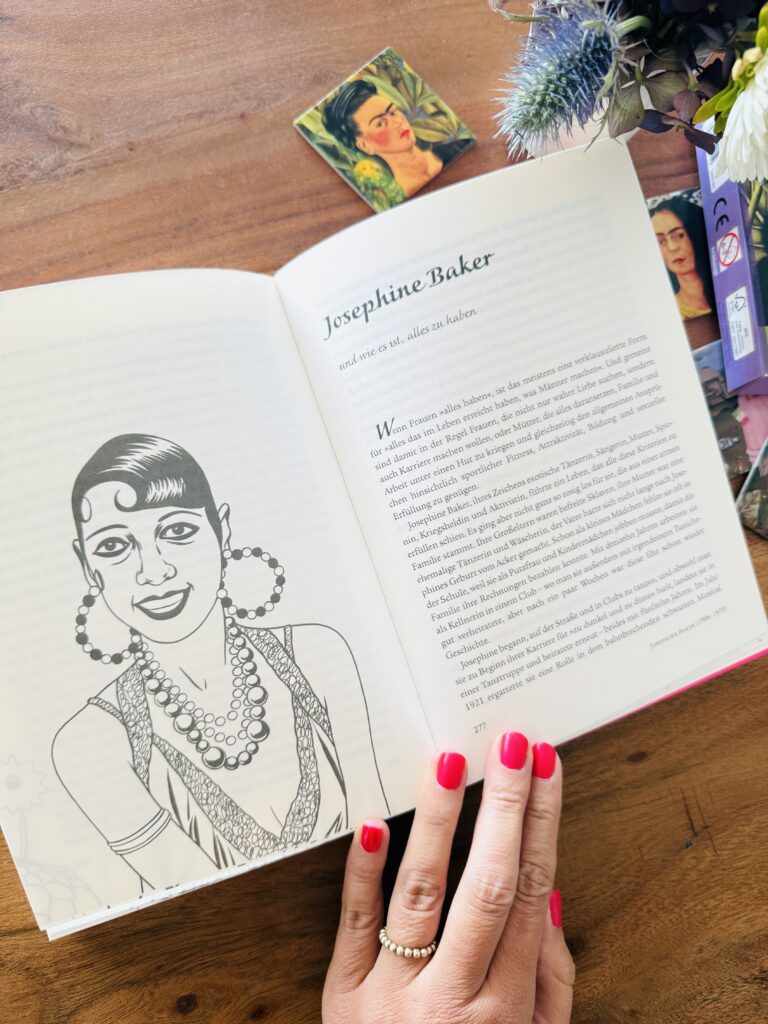 Josephine Baker
und wie es ist, alles zu haben
Wenn Frauen »alles haben«, ist das meistens eine verklausulierte Form
für »alles das im Leben erreicht haben, was Männer machen«. Und gemeint
sind damit in der Regel Frauen, die nicht nur wahre Liebe suchen, sondern
auch Karriere machen wollen, oder Mütter, die alles daransetzen, Familie und
Arbeit unter einen Hut zu kriegen und gleichzeitig den allgemeinen Ansprü-
chen hinsichtlich sportlicher Fitness, Attraktivität, Bildung und sexueller
Erfüllung zu genügen.
Josephine Baker, ihres Zeichens exotische Tänzerin, Sängerin, Mutter, Spio-
nin, Kriegsheldin und Aktivistin, führte ein Leben, das alle diese Kriterien zu
erfüllen schien. Es ging aber nicht ganz so rosig los für sie, die aus einer armen
Familie stammt. Ihre Großeltern waren befreite Sklaven, ihre Mutter war eine
ehemalige Tänzerin und Wäscherin, der Vater hatte sich nicht lange nach Jose-
phines Geburt vom Acker gemacht. Schon als kleines Mädchen fehlte sie oft in
der Schule, weil sie als Putzfrau und Kindermädchen jobben musste, damit die
Familie ihre Rechnungen bezahlen konnte. Mit dreizehn Jahren arbeitete sie
als Kellnerin in einem Club - wo man sie außerdem mit irgendeinem Tunicht-
gut verheiratete, aber nach ein paar Wochen war diese Ehe schon wieder
Geschichte.
Josephine begann, auf der Straße und in Clubs zu tanzen, und obwohl man
sie zu Beginn ihrer Karriere für »zu dunkel und zu dünn« hielt, landete sie in
einer Tanztruppe und heiratete erneut - beides mit fünfzehn Jahren. Im Jahr
1921 ergatterte sie eine Rolle in dem bahnbrechenden schwarzen Musical
Josephine Baker (1906–1975)
277
CE